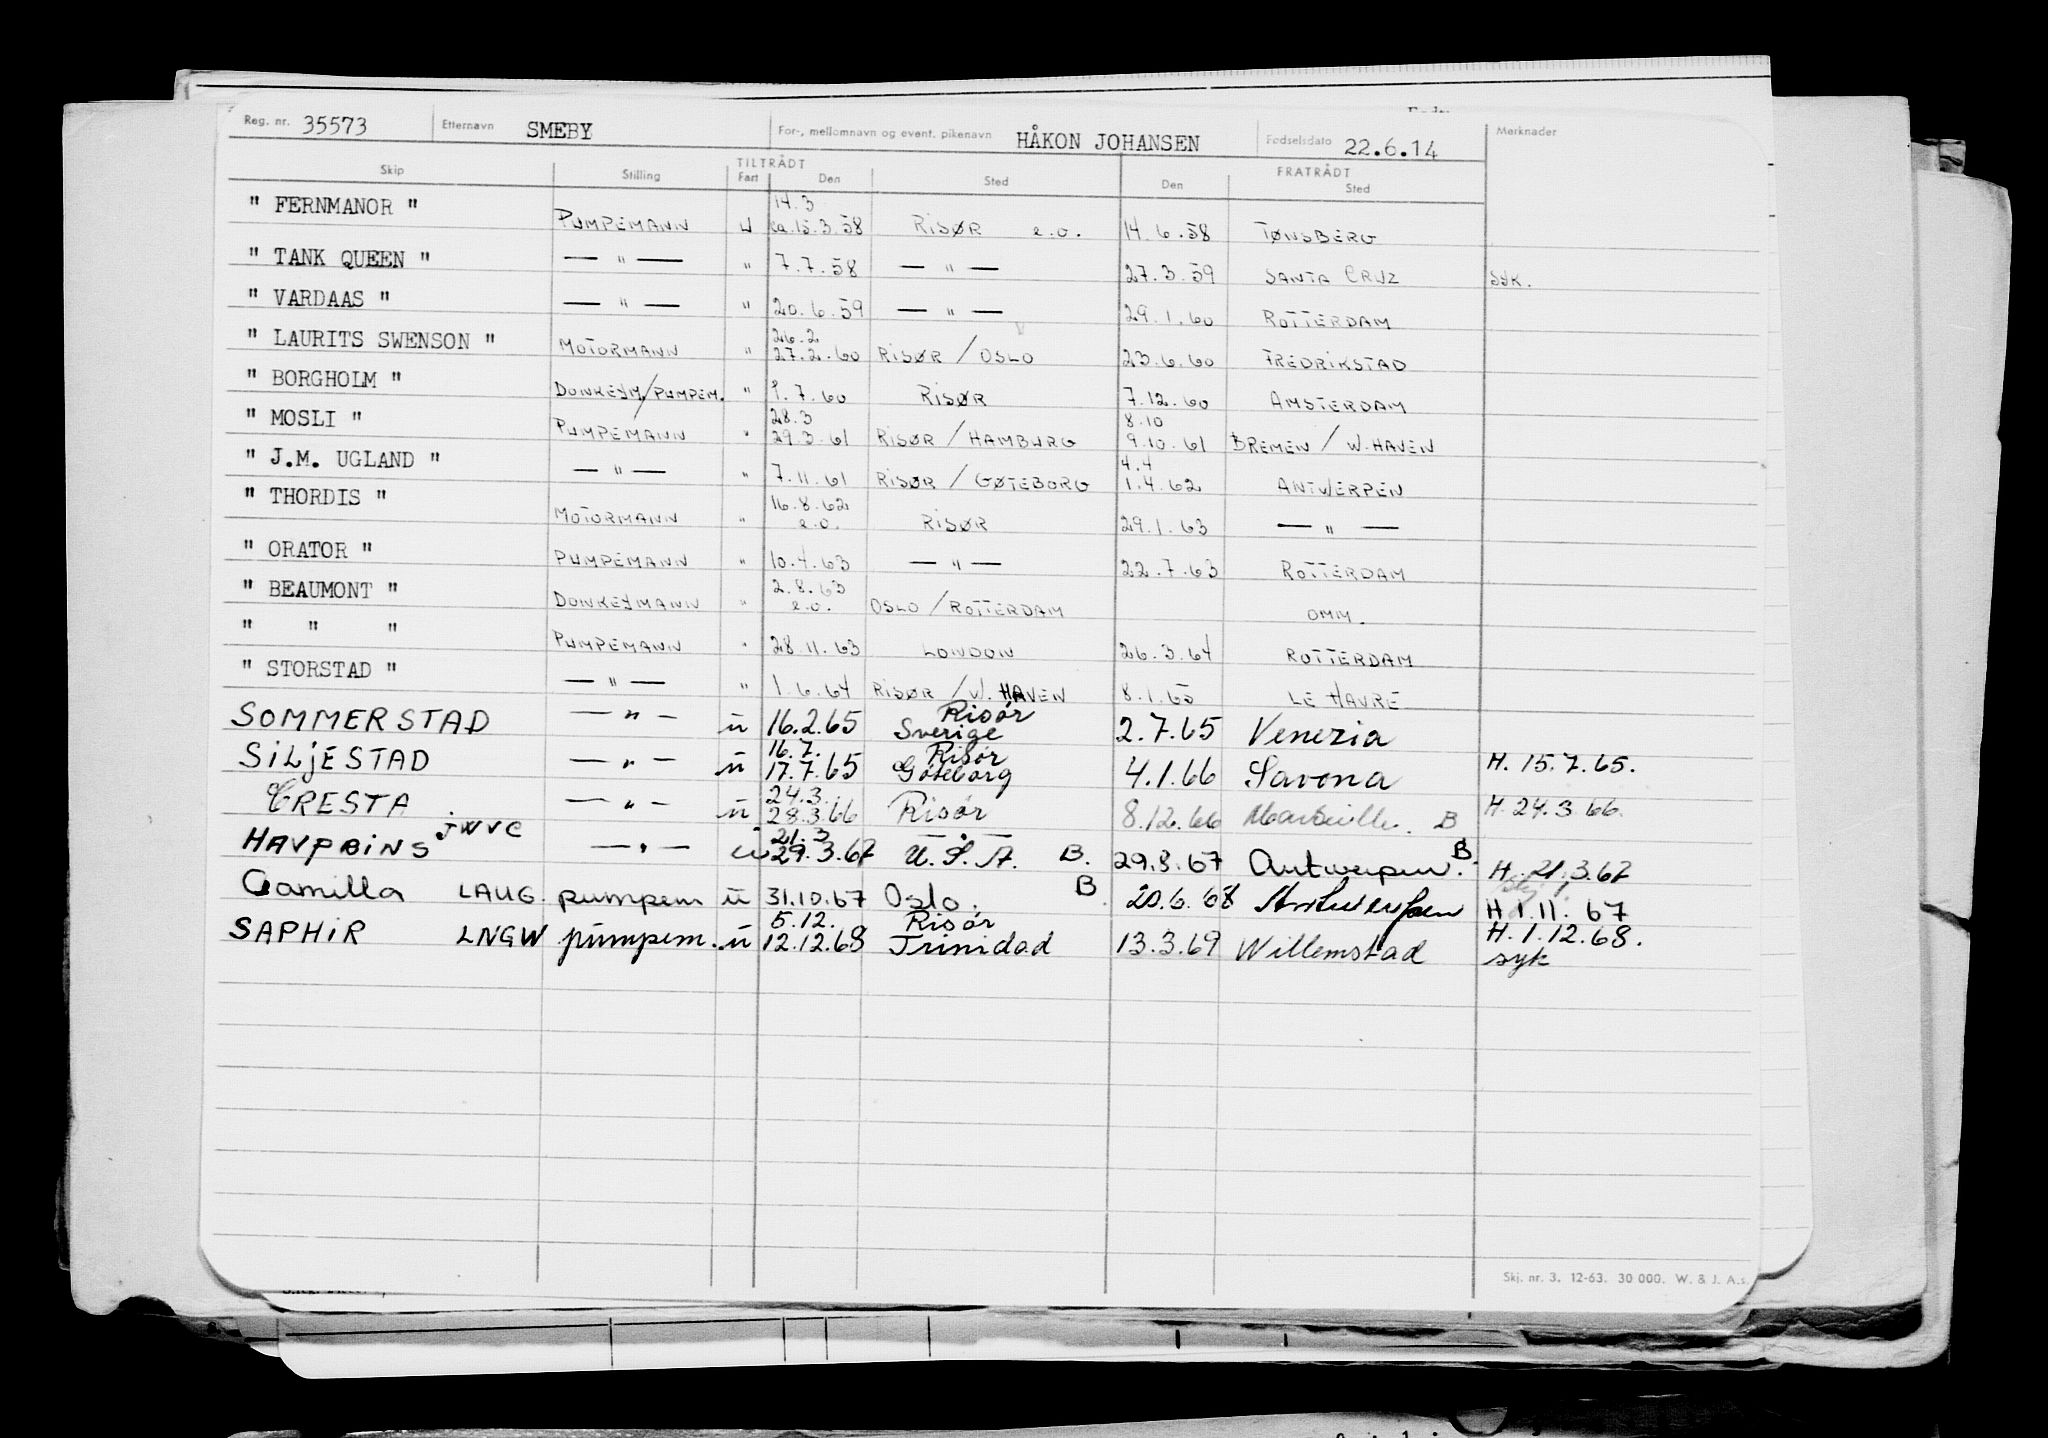 Reg. nr. 35573 Etternavn SMEBY For-, mellomnavn og event. pikenavn HÅKON JOHANSEN Fødselsdato 22.6.14 Merknader
TILTRÅDT FRATRÅDT
Skip Stilling Fart Den Sted Den Sted
14.3
" FERNMANOR " PUMPEMANN U ca.15.3.58 RISØR e.o. 14.6.58 TØNSBERG
" TANK QUEEN " — " — " 7.7.58 — " — 27.3.59 SANTA CRUZ SYK.
" VARDAAS " — " — " 20.6.59 — " — 29.1.60 ROTTERDAM
26.2
" LAURITS SWENSON " MOTORMANN " 27.2.60 RISØR / OSLO 23.6.60 FREDRIKSTAD
" BORGHOLM " DONKEYM./PUMPEM. " 9.7.60 RISØR 7.12.60 AMSTERDAM
28.3 8.10
" MOSLI " PUMPEMANN " 29.3.61 RISØR / HAMBURG 9.10.61 BREMEN / W.HAVEN
4.4
" J.M. UGLAND " — " — " 7.11.61 RISØR / GØTEBORG 1.4.62 ANTWERPEN
16.8.62
" THORDIS " MOTORMANN " e.o. RISØR 29.1.63 — " —
" ORATOR " PUMPEMANN " 10.4.63 — " — 22.7.63 ROTTERDAM
2.8.63
" BEAUMONT " DONKEYMANN " e.o. OSLO / ROTTERDAM OMM.
" " " PUMPEMANN " 28.11.63 LONDON 26.3.64 ROTTERDAM
" STORSTAD " — " — " 1.6.64 RISØR / W. HAVEN 8.1.65 LE HAVRE
Risør
SOMMERSTAD — " — u 16.2.65 Sverige 2.7.65 Venezia
16.7. Risør
SILJESTAD — " — u 17.7.65 Göteborg 4.1.66 Savona H. 15.7.65.
24.3.
CRESTA — " — u 28.3.66 Risør 8.12.66 B H. 24.3.66.
21.3 — " —
HAVPRINS JWVC — " — u 29.3.67 U.S.A. B. 29.8.67 Antwerpen. B. H. 21.3.67
Camilla LAUG. pumpem u 31.10.67 Oslo. B 20.6.68 H 1.11. 67
5.12. Risør
SAPHIR LNGW pumpem. u 12.12.68 Trinidad 13.3.69 Willemstad H. 1.12.68.
syk
Skj. nr. 3. 12-63. 30 000. W. & J. A.s.